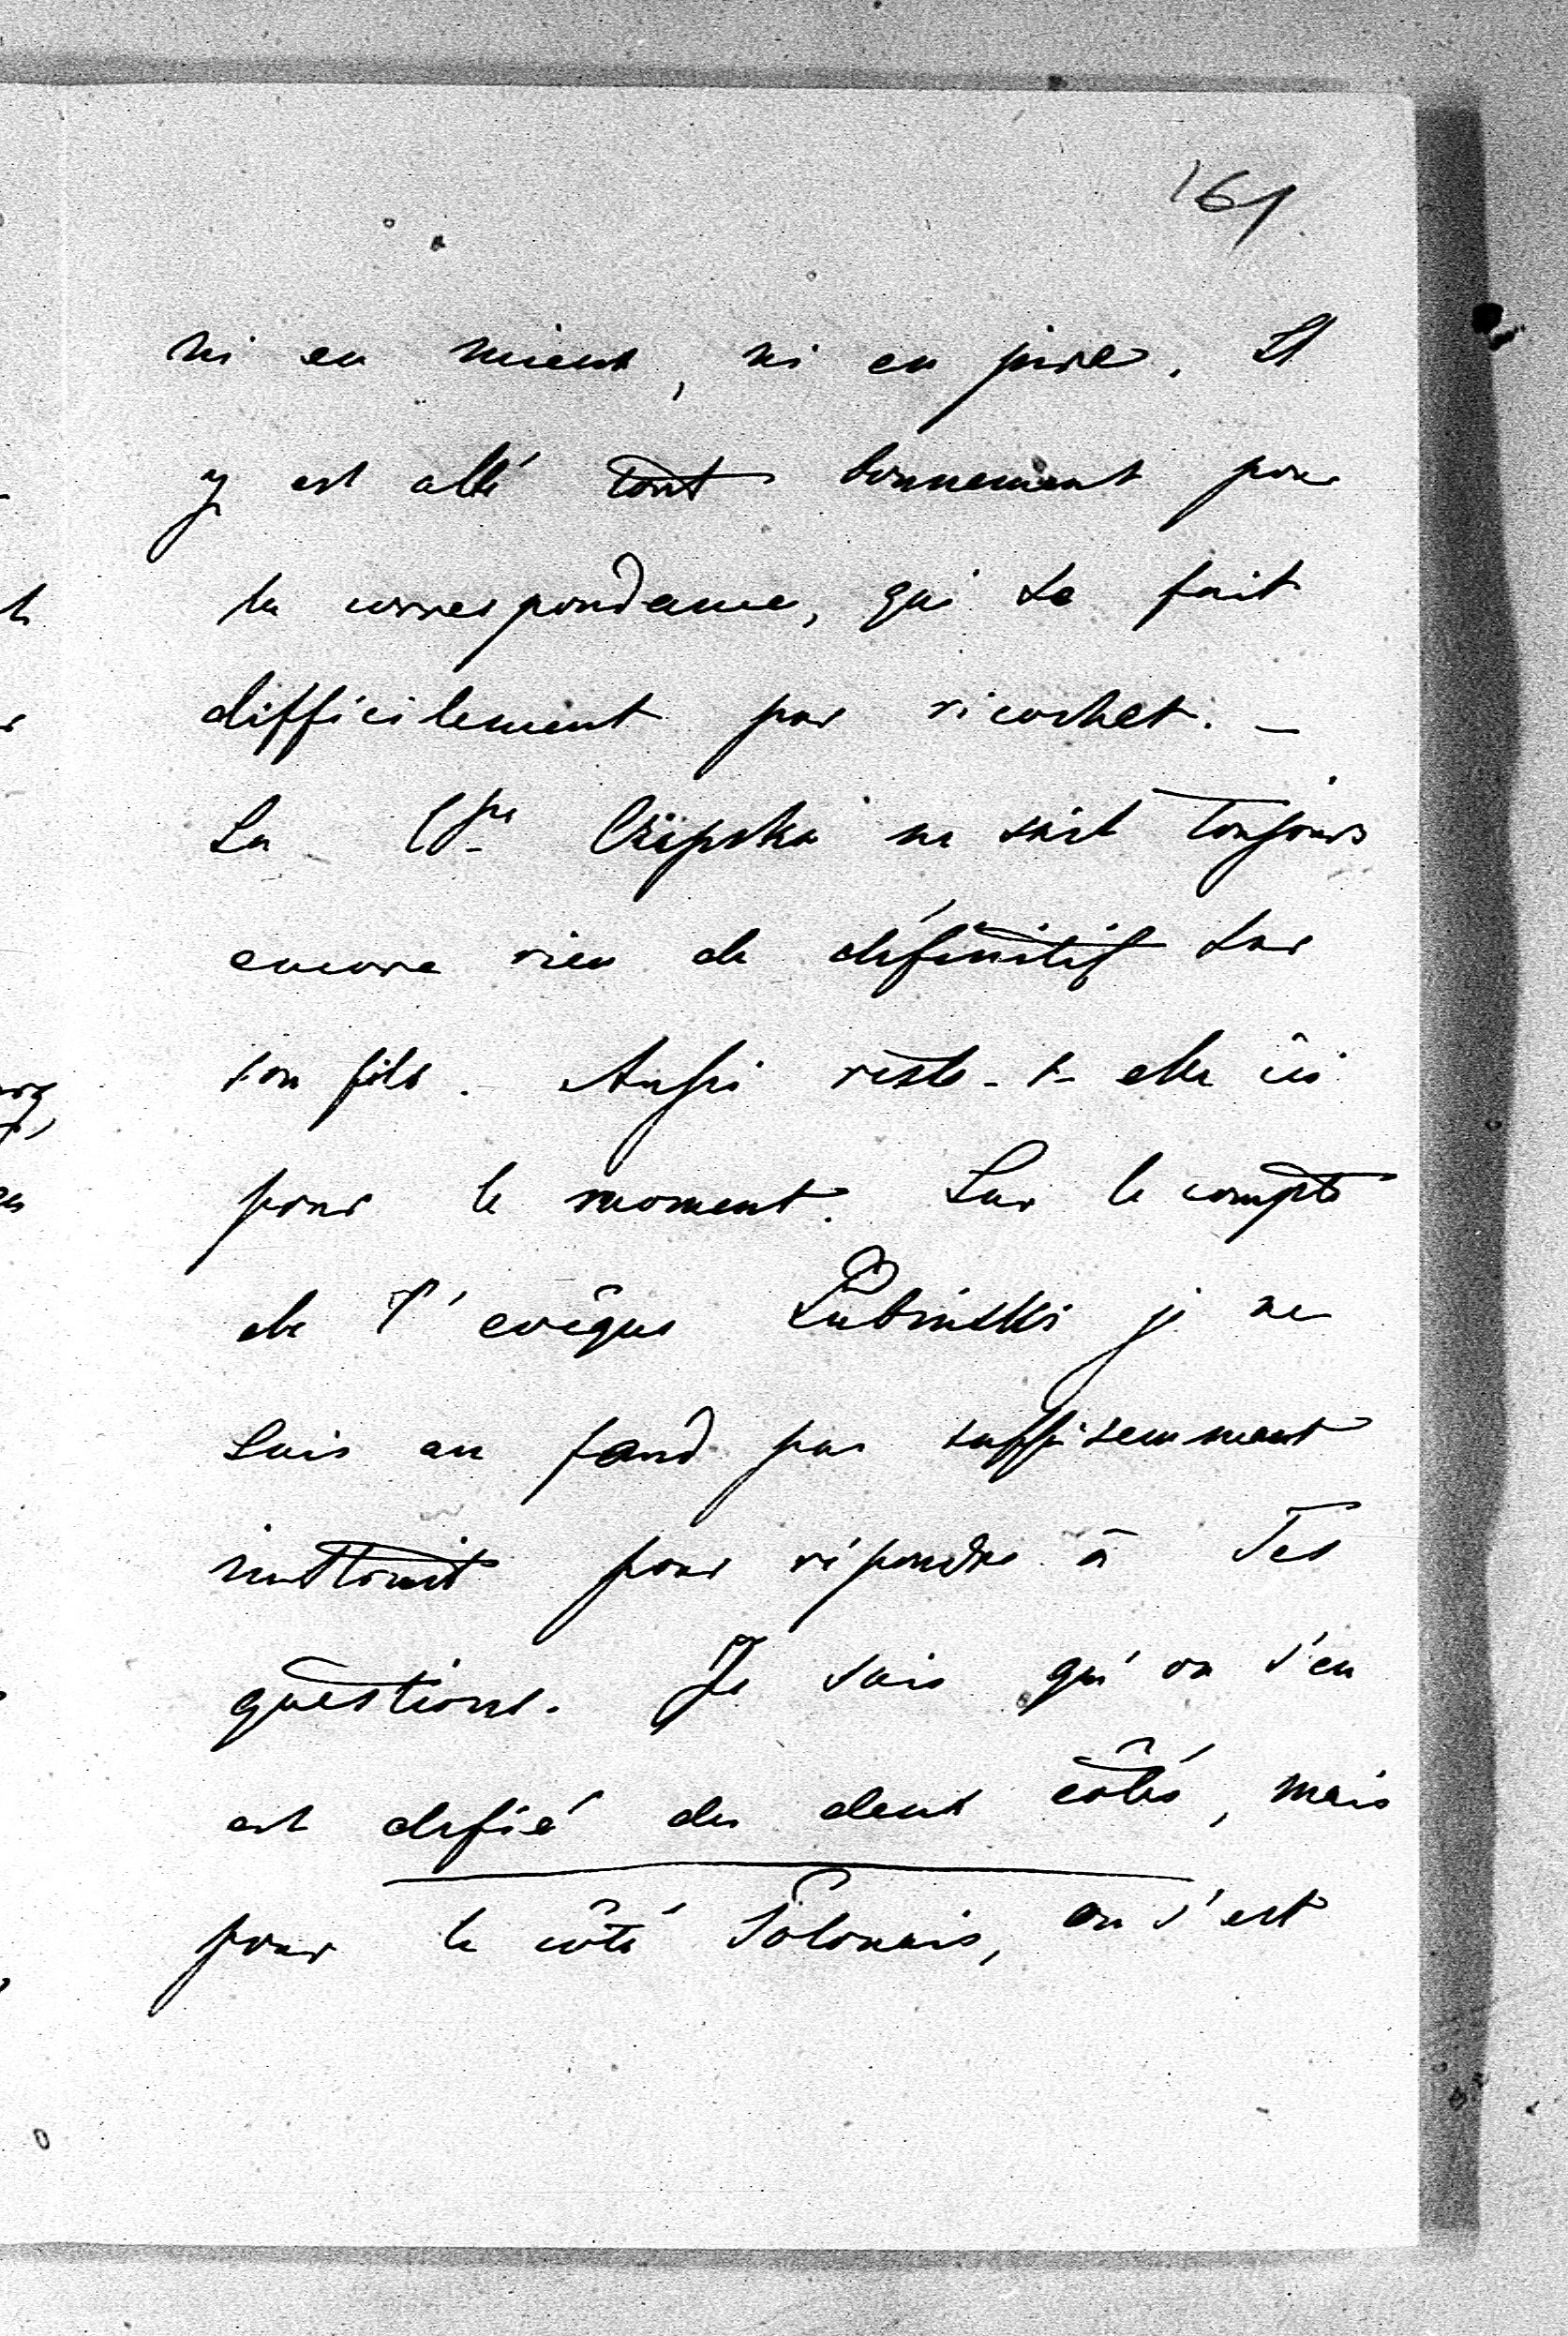 161
ni en mieux, ni en pire. Il
y est allé tout bonnement pour
la correspondance, qui se fait
difficilement par ricochet. —
La Csse ne sait toujours
encore rien de définitif sur
son fils. Aussi reste-t-elle ici
pour le moment. Sur le compte
de l'evêque Lubinski je ne
suis au fond pas suffisemment
instruit pour répondre à Tes
questions. Je sais qu'on s'en
est defié des deux côtés, mais
pour le côté Polonais, on s'est